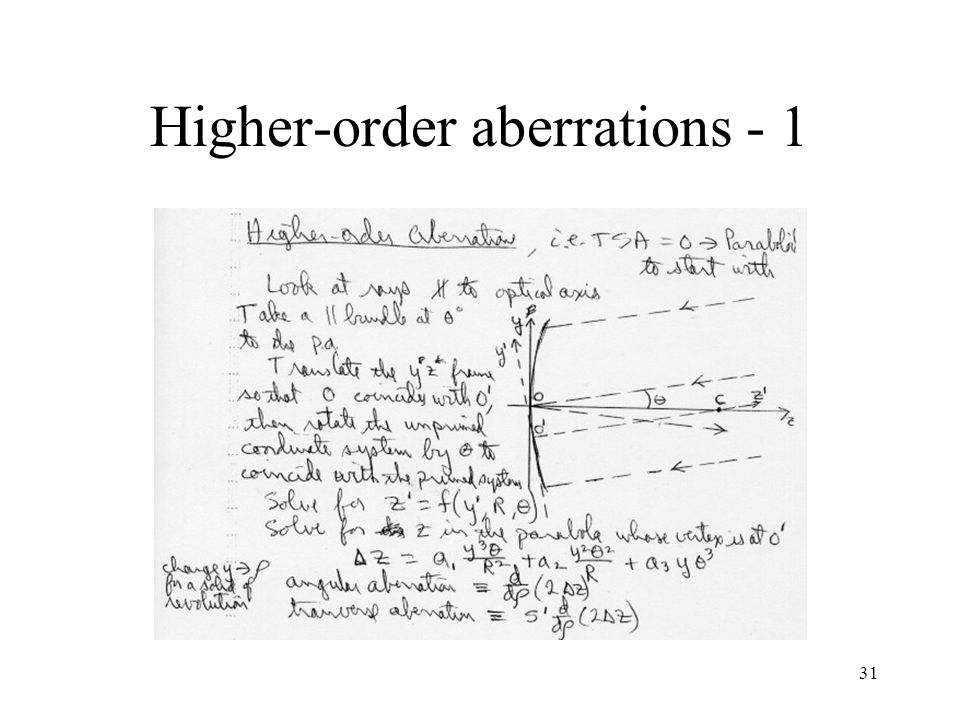 Higher-order aberrations - 1
Higher-order aberration, i.e. TSA = 0 → Paraboloid
to start with
Look at rays ∦ to optical axis
Take a || bundle at θ°
to the p.a.
Translate the y z frame
so that O coincides with O',
then rotate the unprimed
coordinate system by θ to
coincide with the primed system
y
y'
O
O'
θ
C
z'
z
Solve for z' = f(y', R, θ)
Solve for z in the parabola whose vertex is at O'
Δz = a₁ y³θ/R² + a₂ y²θ²/R + a₃ y θ³
change y → ρ
for a solid of
revolution
angular aberration ≡ d/dρ (2Δz)
tranvers aberration ≡ s' d/dρ (2Δz)
31